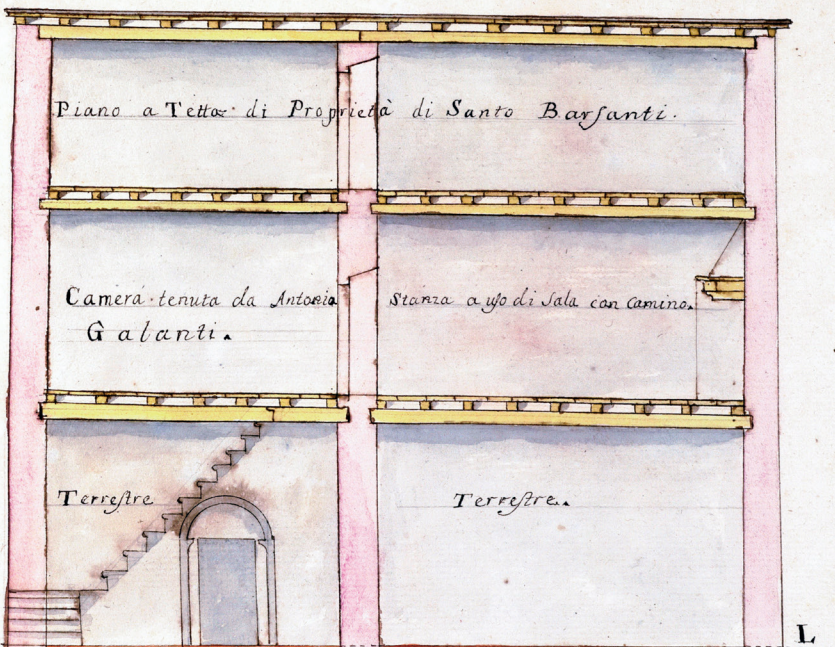 Piano a Tetto di Proprietà di Santo Barſanti.
Camera tenuta da Antonia
Galanti.
Stanza a uſo di Sala con Camino.
Terreſtre
Terreſtre.
L